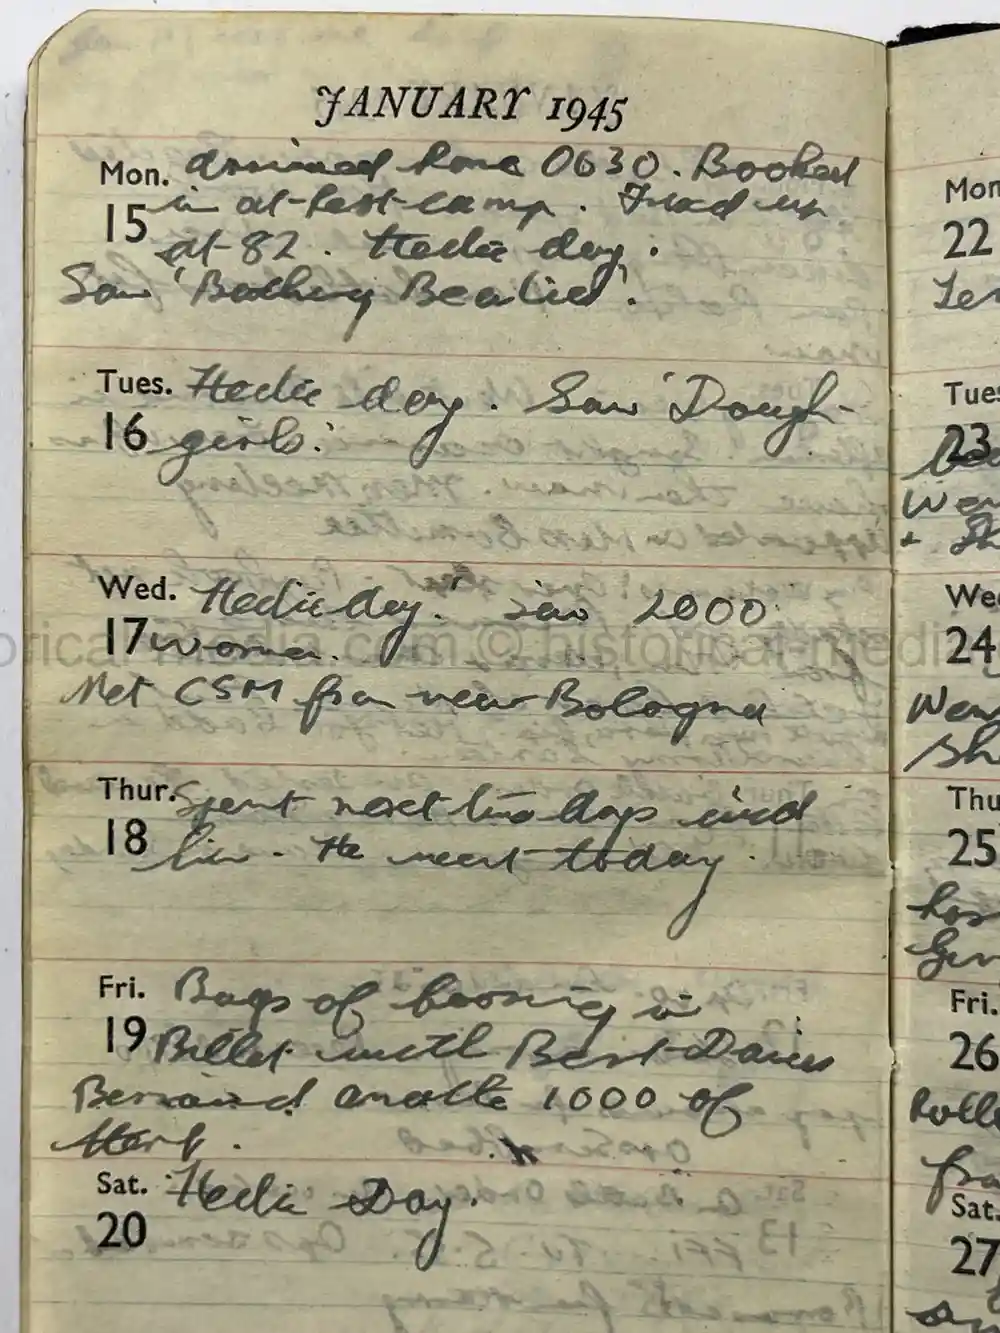 JANUARY 1945
Mon. arrived Rome 0630. Booked
15 in at rest camp. Fixed up
at 82. Hectic day.
Saw 'Bathing Beauties'.
Tues. Hectic day. Saw 'Dough-
16 girls'.
Wed. Hectic day. Saw 2000
17 women.
Met CSM from near Bologna
Thur. Spent next two days with
18 him. He went today.
Fri. Bags of boozing in
19 Billet with Bert Davies
Bernard another 1000 of
them.
Sat. Hectic Day.
20
Mon
22
Tues
23
Wed
24
Thu
25
Fri.
26
Sat.
27
historical-media.com © historical-medi